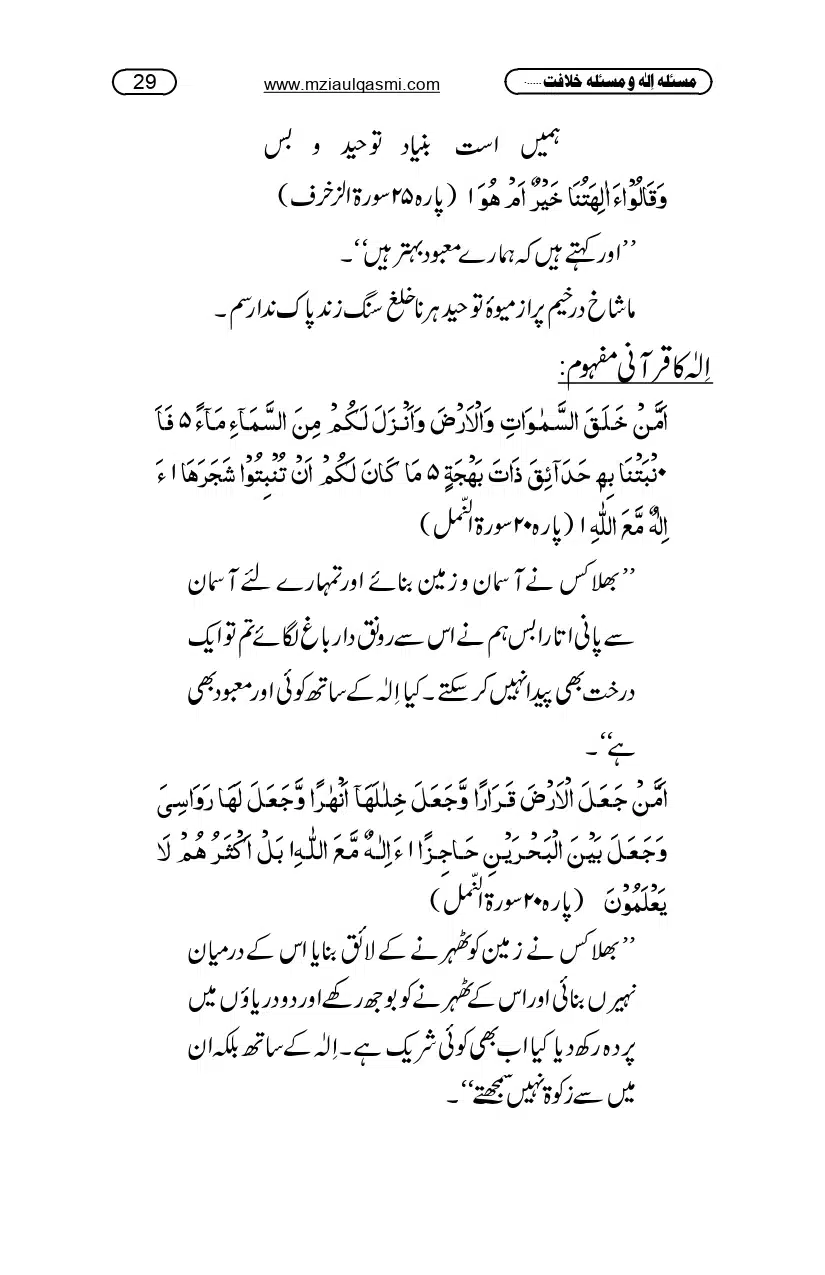 مسئلہ اِلٰہ و مسئلہ خلافت ......
www.mziaulqasmi.com
29
ہمیں است بنیاد توحید و بس
وَقَالُوْٓا ءَاٰلِهَتُنَا خَيْرٌ اَمْ هُوَ ۱ (پارہ ۲۵ سورۃ الزخرف)
’’اور کہتے ہیں کہ ہمارے معبود بہتر ہیں‘‘۔
ماشاخ درخیم پراز میوۂ توحید ہر ناخلغ سنگ زند پاک ندارسم ۔
اِلٰہ کا قرآنی مفہوم:
اَمَّنْ خَلَقَ السَّمٰوَاتِ وَالْاَرْضَ وَاَنْزَلَ لَكُمْ مِنَ السَّمَآءِ مَآءً ۵ فَاَ
نْبَتْنَا بِهٖ حَدَآئِقَ ذَاتَ بَهْجَةٍ ۵ مَا كَانَ لَكُمْ اَنْ تُنْبِتُوْا شَجَرَهَا ۱ ءَ
اِلٰهٌ مَّعَ اللّٰهِ ۱ (پارہ ۲۰ سورۃ النّمل)
’’بھلا کس نے آسمان و زمین بنائے اور تمہارے لئے آسمان
سے پانی اتارا بس ہم نے اس سے رونق دار باغ لگائے تم تو ایک
درخت بھی پیدا نہیں کر سکتے ۔ کیا اِلٰہ کے ساتھ کوئی اور معبود بھی
ہے‘‘ ۔
اَمَّنْ جَعَلَ الْاَرْضَ قَرَارًا وَّجَعَلَ خِلٰلَهَآ اَنْهٰرًا وَّجَعَلَ لَهَا رَوَاسِىَ
وَجَعَلَ بَيْنَ الْبَحْرَيْنِ حَاجِزًا ۱ ءَاِلٰهٌ مَّعَ اللّٰهِ۱ بَلْ اَكْثَرُ هُمْ لَا
يَعْلَمُوْنَ (پارہ ۲۰ سورۃ النّمل)
’’بھلا کس نے زمین کو ٹھہرنے کے لائق بنایا اس کے درمیان
نہیرں بنائی اور اس کے ٹھہرنے کو بوجھ رکھے اور دو دریاؤں میں
پردہ رکھ دیا کیا اب بھی کوئی شریک ہے ۔ اِلٰہ کے ساتھ بلکہ ان
میں سے زکوۃ نہیں سمجھتے‘‘ ۔